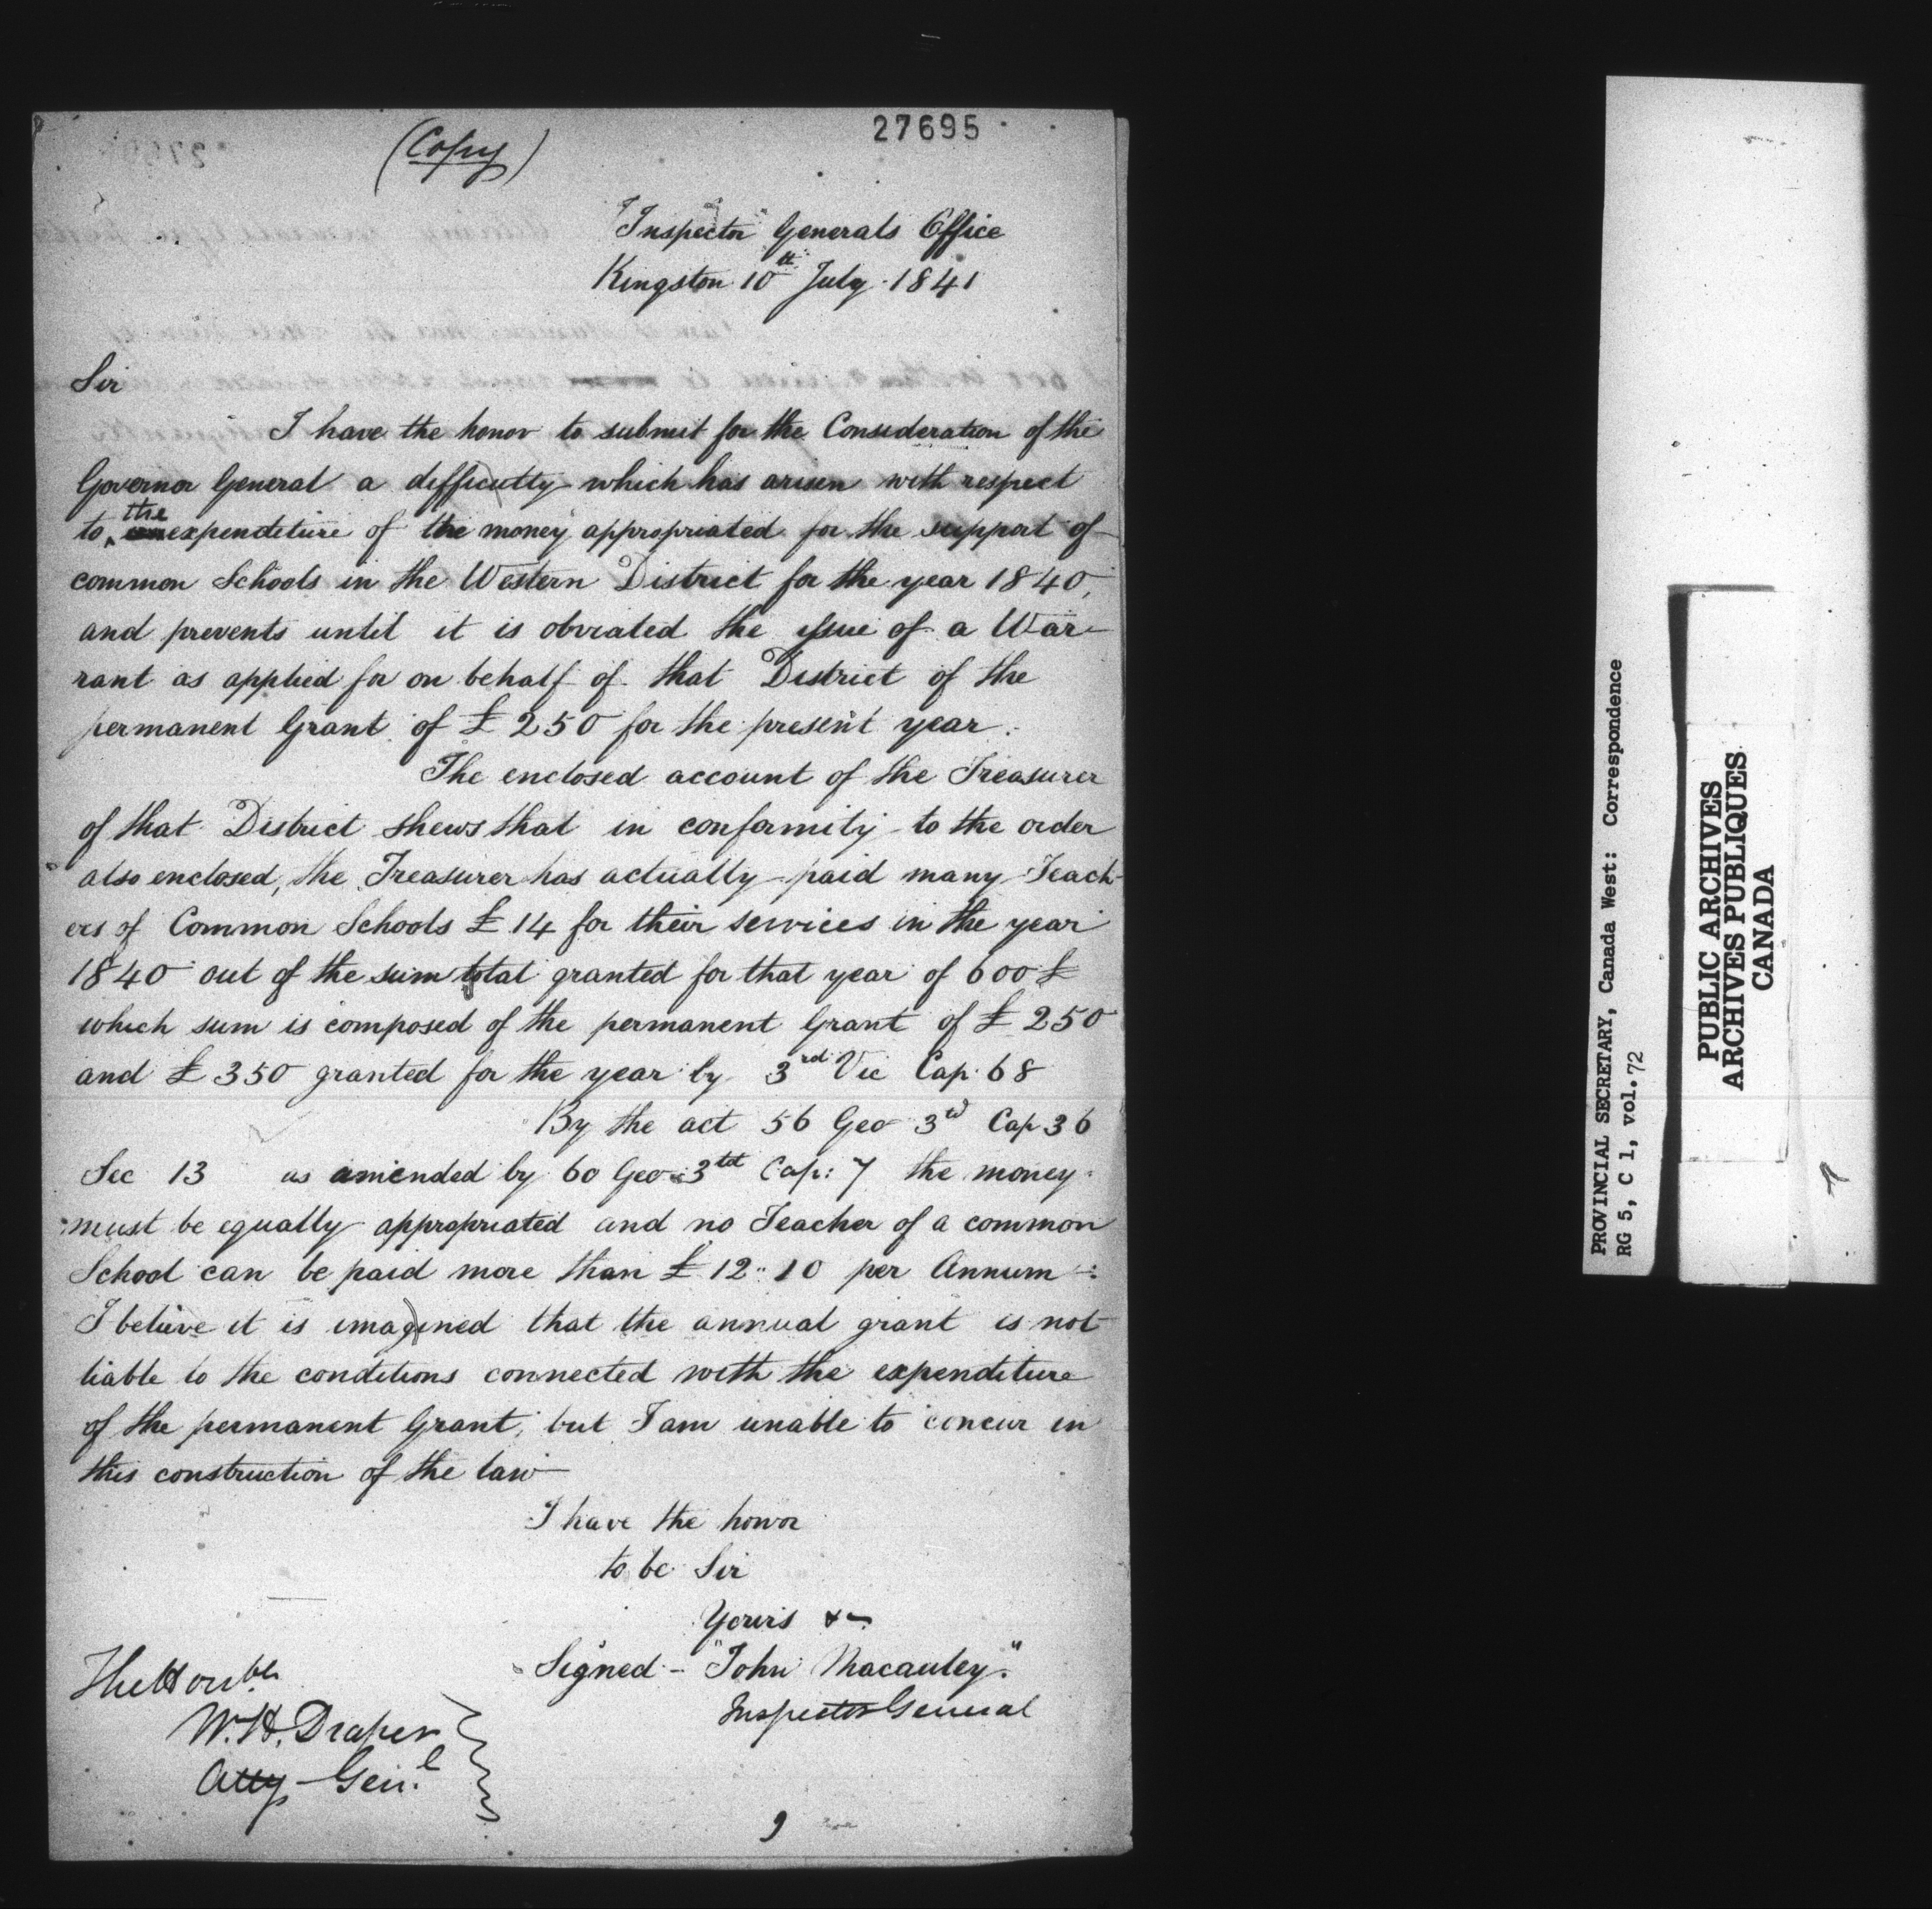 27695
(Copy)
Inspector Generals Office
Kingston 10th July 1841
Sir
I have the honor to submit for the Consideration of the
Governor General a difficulty which has arisen with respect
to the expenditure of the money appropriated for the support of
common Schools in the Western District for the year 1840,
and prevents until it is obviated the issue of a War-
rant as applied for on behalf of that District of the
permanent Grant of £250 for the present year.
The enclosed account of the Treasurer
of that District shews that in conformity to the order
also enclosed, the Treasurer has actually paid many Teach-
ers of Common Schools £14 for their services in the year
1840 out of the sum total granted for that year of 600£
which sum is composed of the permanent Grant of £250
and £350 granted for the year by 3rd Vic Cap. 68
By the act 56 Geo 3rd Cap 36
Sec 13 as amended by 60 Geo 3rd Cap: 7 the money
must be equally appropriated and no Teacher of a common
School can be paid more than £12"10 per Annum:
I believe it is imagined that the annual grant is not
liable to the conditions connected with the expenditure
of the permanent Grant, but I am unable to concur in
this construction of the law
I have the honor
to be Sir
Yours &c
Signed - "John Macauley".
Inspector General
The Honble
W. H. Draper
Atty Genl
9
PROVINCIAL SECRETARY, Canada West: Correspondence
RG 5, C 1, vol. 72
PUBLIC ARCHIVES
ARCHIVES PUBLIQUES
CANADA